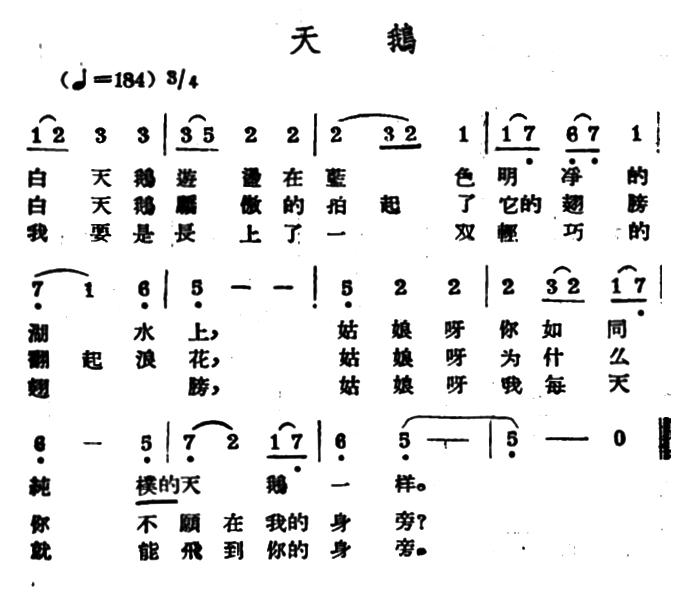 天 鵝
(♩=184) 3/4
1 2 3 3 | 3 5 2 2 | 2 3 2 1 | 1 7 6 7 1 |
白 天 鵝 遊 盪 在 藍 色 明 淨 的
白 天 鵝 驕 傲 的 拍 起 了 它的 翅 膀
我 要 是 長 上 了 一 双 輕 巧 的
7 1 6 | 5 — — | 5 2 2 | 2 3 2 1 7 |
湖 水 上, 姑 娘 呀 你 如 同
翻 起 浪 花, 姑 娘 呀 为 什 么
翅 膀, 姑 娘 呀 我 每 天
6 — 5 | 7 2 1 7 | 6 5 — | 5 — 0
純 樸的 天 鵝 一 样。
你 不 願 在 我的 身 旁?
就 能 飛 到 你的 身 旁。